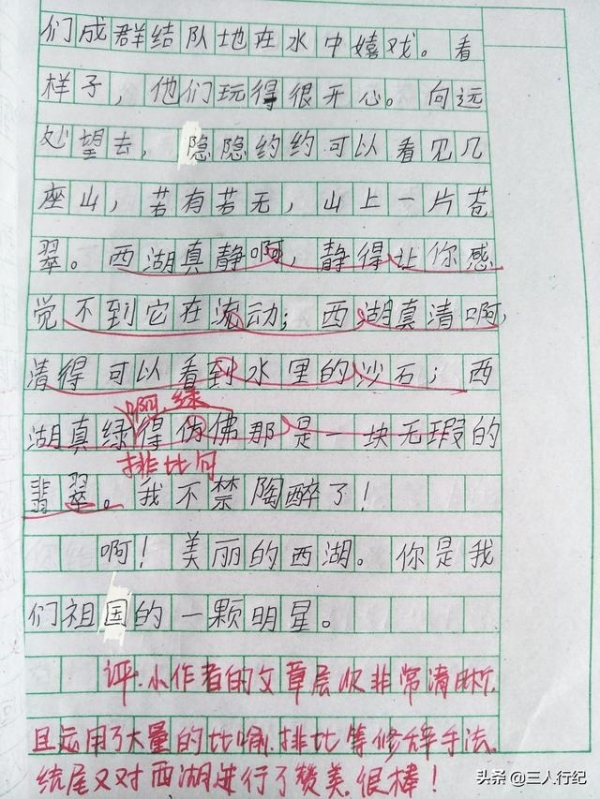 们成群结队地在水中嬉戏。看
样子，他们玩得很开心。向远
处望去，隐隐约约可以看见几
座山，若有若无，山上一片苍
翠。西湖真静啊，静得让你感
觉不到它在流动；西湖真清啊，
清得可以看到水里的沙石；西
啊，绿
湖真绿得仿佛那是一块无瑕的
排比句
翡翠。我不禁陶醉了！
啊！美丽的西湖。你是我
们祖国的一颗明星。
评：小作者的文章层次非常清晰，
且运用了大量的比喻、排比等修辞手法，
结尾又对西湖进行了赞美，很棒！
头条@三人行纪